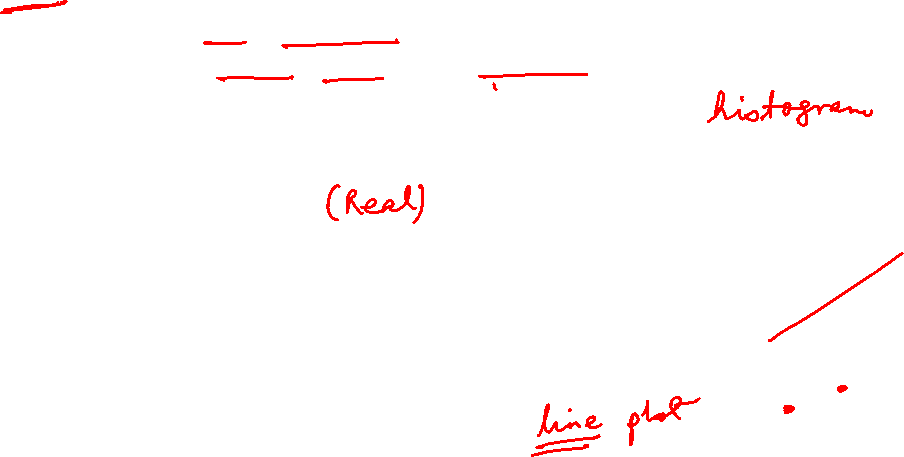 histogram
(Real)
line plot